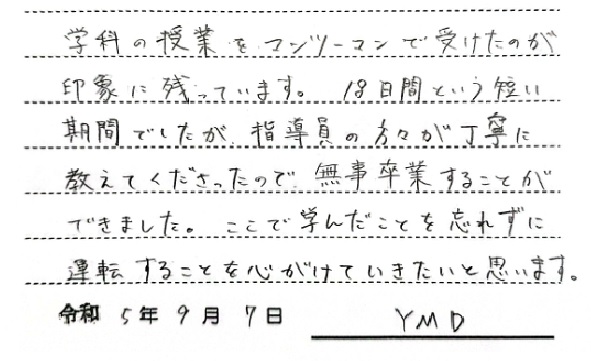 学科の授業をマンツーマンで受けたのが
印象に残っています。 18日間という短い
期間でしたが、指導員の方々が丁寧に
教えてくださったので、無事卒業することが
できました。ここで学んだことを忘れずに
運転することを心がけていきたいと思います。
令和 5年 9月 7日 YMD